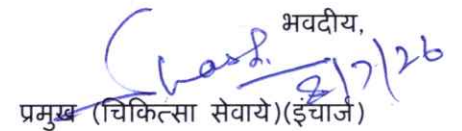 भवदीय,
8/7/26
प्रमुख (चिकित्सा सेवाये)(इंचार्ज)